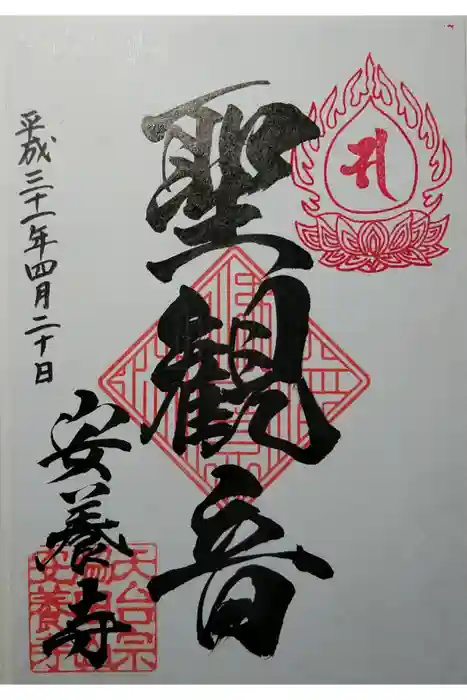 聖観音
平成三十一年四月二十日
安養寺
天台宗
安養寺